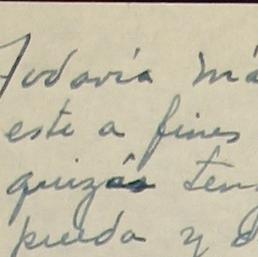 Todavía má
este a fines
quizás ten
pueda y d